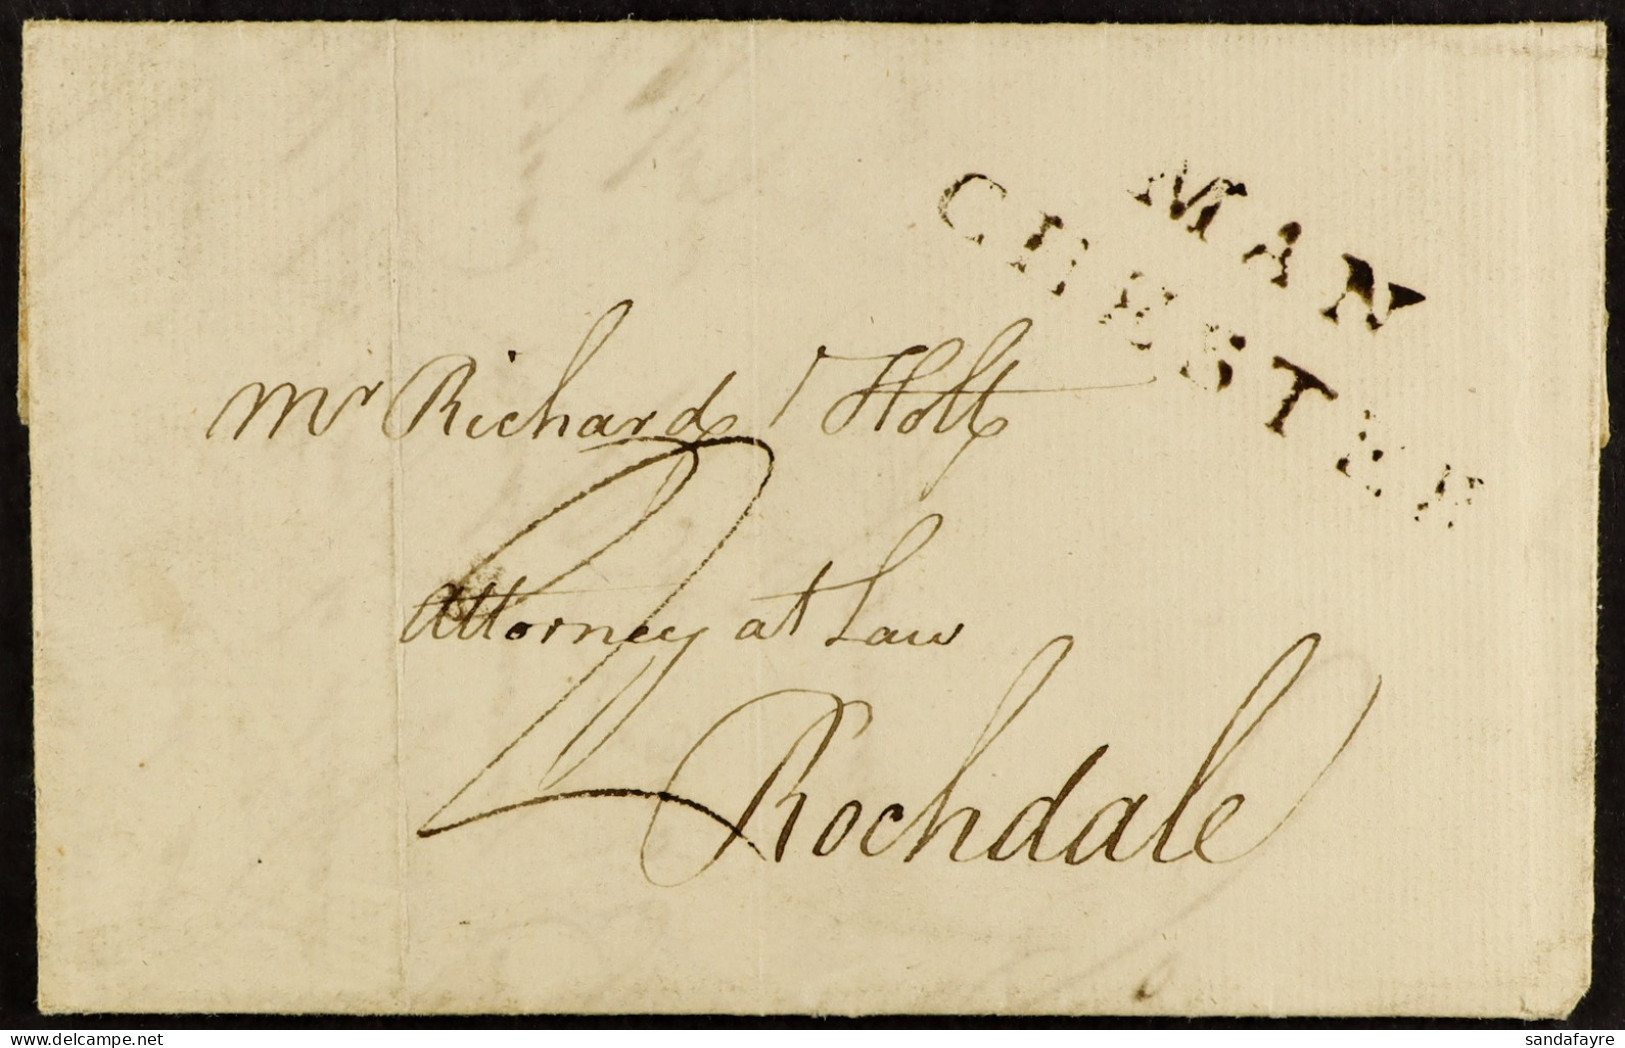 MAN
CHESTER
Mr Richard Holt
2
Attorney at Law
Rochdale
sandafayre